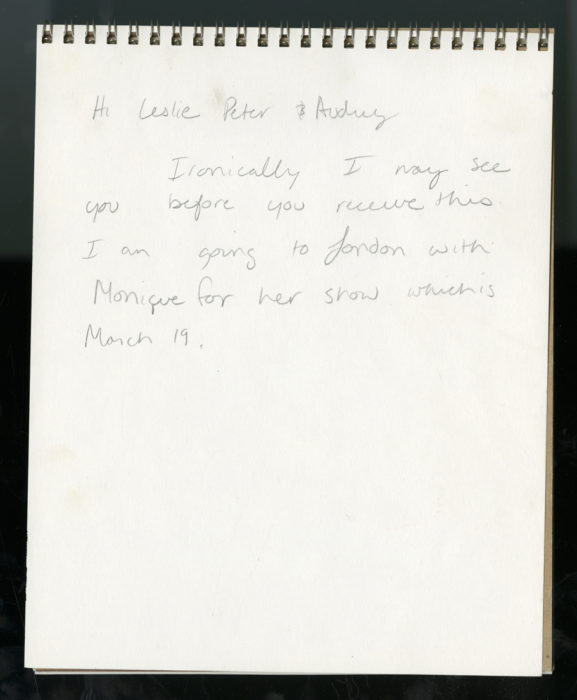 Hi Leslie Peter & Audrey
Ironically I may see
you before you receive this.
I am going to London with
Monique for her show which is
March 19.